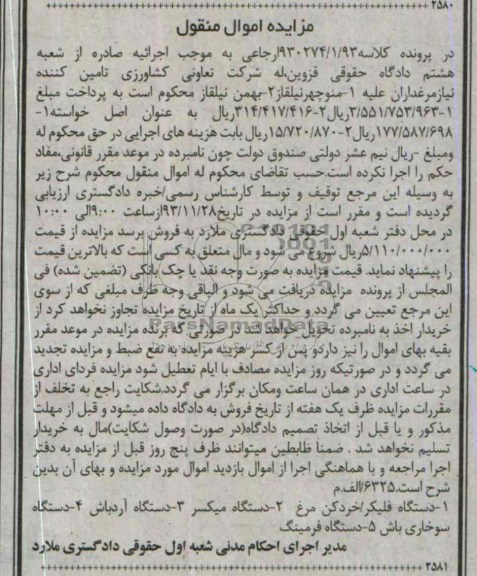 ۲۵۸۰
مزایده اموال منقول
در پرونده کلاسه۹۳۰۲۷۴/۱/۹۳ارجاعی به موجب اجرائیه صادره از شعبه
هشتم دادگاه حقوقی قزوین،له شرکت تعاونی کشاورزی تامین کننده
نیازمرغداران علیه ۱-منوچهرنیلقاز۲-بهمن نیلقاز محکوم است به پرداخت مبلغ
۳/۵۵۱/۷۵۳/۹۶۳-۱ریال۲-۳۱۴/۴۱۷/۴۱۶ریال به عنوان اصل خواسته۱-
۱۷۷/۵۸۷/۶۹۸ریال۲-۱۵/۷۲۰/۸۷۰ریال بابت هزینه های اجرایی در حق محکوم له
ومبلغ -ریال نیم عشر دولتی صندوق دولت چون نامبرده در موعد مقرر قانونی،مفاد
حکم را اجرا نکرده است.حسب تقاضای محکوم له اموال منقول محکوم شرح زیر
به وسیله این مرجع توقیف و توسط کارشناس رسمی/خبره دادگستری ارزیابی
گردیده است و مقرر است از مزایده در تاریخ۹۳/۱۱/۲۸ازساعت ۹:۰۰الی ۱۰:۰۰
در محل دفتر شعبه اول حقوقی دادگستری ملارد به فروش برسد مزایده از قیمت
۵/۱۱۰/۰۰۰/۰۰۰ریال شروع می شود و مال متعلق به کسی است که بالاترین قیمت
را پیشنهاد نماید. قیمت مزایده به صورت وجه نقد یا چک بانکی (تضمین شده) فی
المجلس از برنده مزایده دریافت می شود و الباقی وجه ظرف مبلغی که از سوی
این مرجع تعیین می گردد و حداکثر یک ماه از تاریخ مزایده تجاوز نخواهد کرد از
خریدار اخذ به نامبرده تحویل خواهد شد در صورتی که برنده مزایده در موعد مقرر
بقیه بهای اموال را نیز داردو پس از کسر هزینه مزایده به نفع ضبط و مزایده تجدید
می گردد و در صورتیکه روز مزایده مصادف با ایام تعطیل شود مزایده فردای اداری
در ساعت اداری در همان ساعت ومکان برگزار می گردد.شکایت راجع به تخلف از
مقررات مزایده ظرف یک هفته از تاریخ فروش به دادگاه داده میشود و قبل از مهلت
مذکور و یا قبل از اتخاذ تصمیم دادگاه(در صورت وصول شکایت)مال به خریدار
تسلیم نخواهد شد . ضمنا طابطین میتوانند ظرف پنج روز قبل از مزایده به دفتر
اجرا مراجعه و با هماهنگی اجرا از اموال بازدید اموال مورد مزایده و بهای آن بدین
شرح است.۶۳۲۵/الف.م
۱-دستگاه فلیکر/خردکن مرغ ۲-دستگاه میکسر ۳-دستگاه آردباش ۴-دستگاه
سوخاری باش ۵-دستگاه فرمینگ
مدیر اجرای احکام مدنی شعبه اول حقوقی دادگستری ملارد
۲۵۸۱